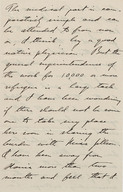 The medical part is com-
paratively simple and can
be attended to from now
on, I think, by a good
native physician. But the
general superintendence of
the work for 10,000 or more
refugees is a large task
and I have been wondering
if there should not be some
one to take my place
here even in sharing the
burden with Miss
I have been away from
more than two
months and feel that I